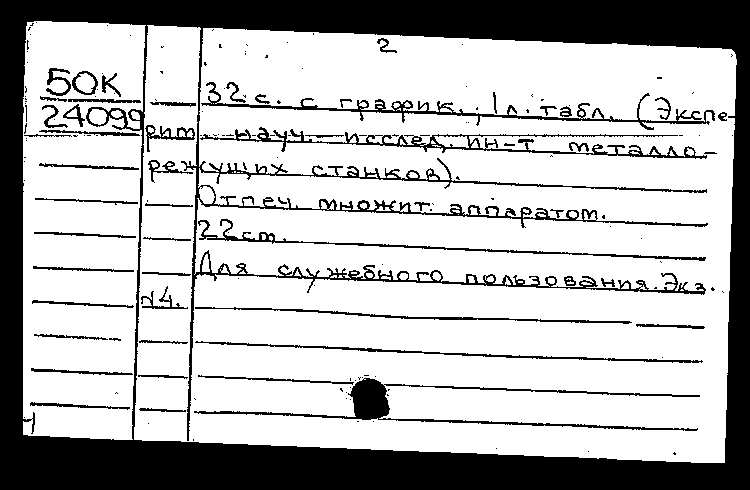 2
50К
24099
32 с. с график., 1 л. табл. (Экспе-
рим. науч.- исслед. ин-т металло-
режущих станков).
Отпеч. множит. аппаратом.
22 см.
Для служебного пользования. Экз.
N4.